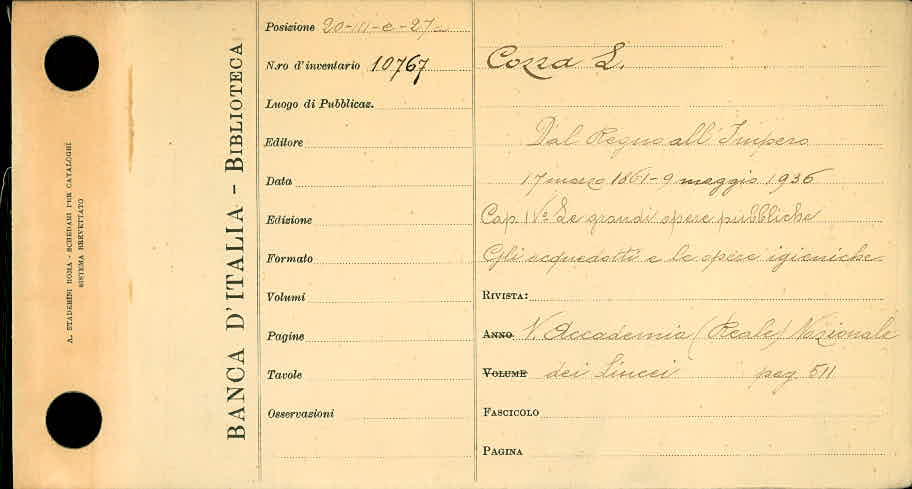 A. STADERINI ROMA - SCHEDARI PER CATALOGHI
SISTEMA BREVETTATO
BANCA D'ITALIA - BIBLIOTECA
Posizione 20-III-e-27
N.ro d'inventario 10767
Luogo di Pubblicaz.
Editore
Data
Edizione
Formato
Volumi
Pagine
Tavole
Osservazioni
Cozza L.
Dal Regno all'Impero
17 marzo 1861-9 maggio 1936
Cap. IVº Le grandi opere pubbliche
Gli acquedotti e le opere igieniche
RIVISTA:
ANNO V. Accademia (Reale) Nazionale
VOLUME dei Lincei pag. 511
FASCICOLO
PAGINA